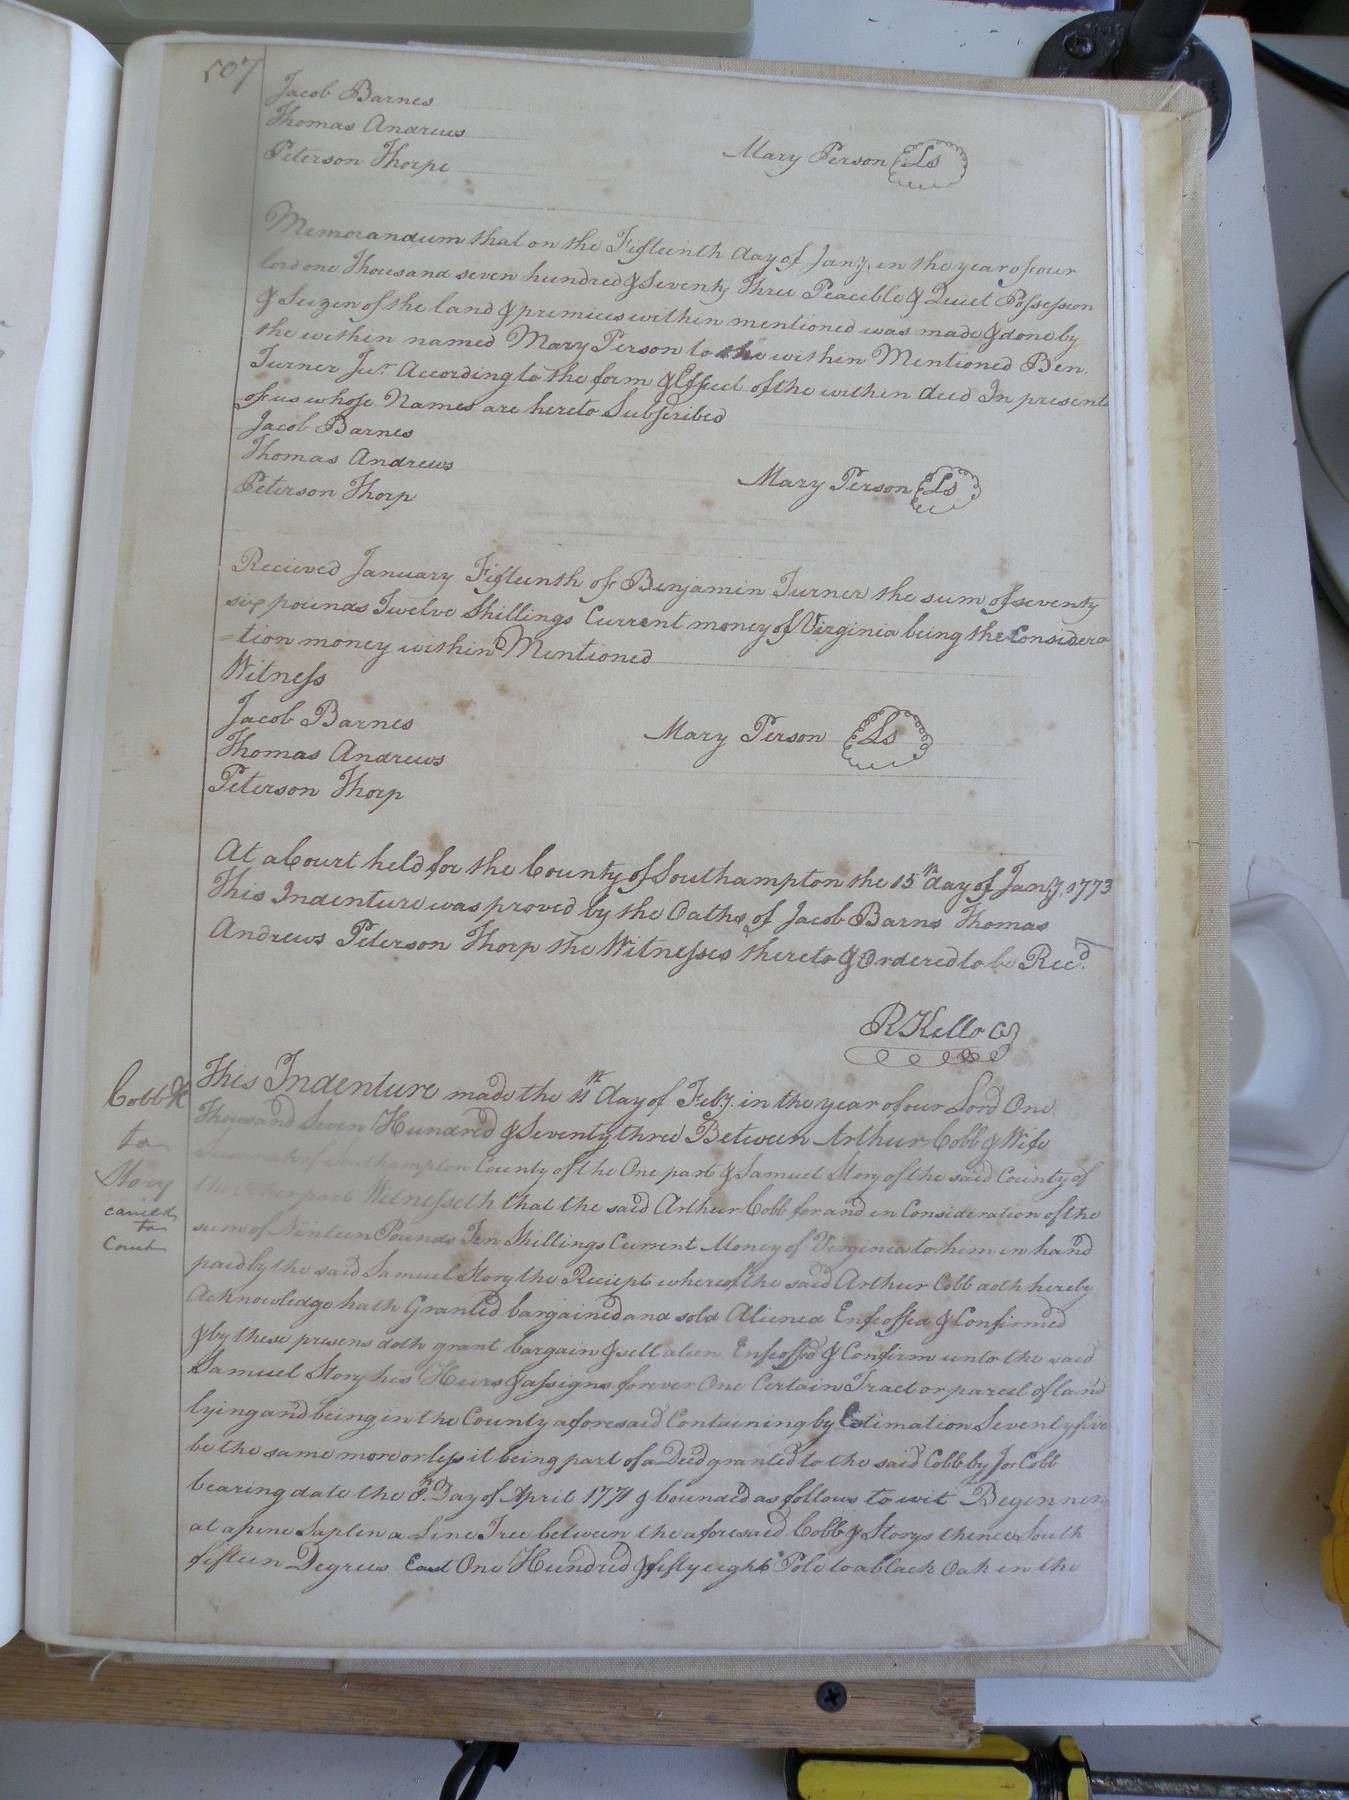 507
Jacob Barnes
Thomas Andrews
Peterson Thorpe
Mary Person Ls
Memorandum that on the Fifteenth day of Jany. in the year of our
lord one Thousand seven hundred & Seventy Three Peacible & Quiet Possession
& Seizen of the land & premises within mentioned was made & done by
the within named Mary Person to the within Mentioned Ben.
Turner Jur. According to the form & Effect of the within deed In presents
of us whose Names are hereto Subscribed
Jacob Barnes
Thomas Andrews
Peterson Thorp
Mary Person Ls
Recieved January Fifteenth of Benjamin Turner the sum of seventy
six pounds Twelve Shillings Current money of Virginia being the Considera
=tion money within Mentioned
Witness
Jacob Barnes
Thomas Andrews
Peterson Thorp
Mary Person Ls
At a Court held for the County of Southampton the 15th day of Jany. 1773
This Indenture was proved by the Oaths of Jacob Barns Thomas
Andrews Peterson Thorp the Witnesses thereto & Ordered to be Recd.
R Kello
Cobb
to
Story
to
Court
This Indenture made the 11th day of Feby. in the year of our Lord One
Thousand Seven Hundred & Seventy three Between Arthur Cobb & Wife
of Southampton County of the One part & Samuel Story of the said County of
the Other part Witnesseth that the said Arthur Cobb for and in Consideration of the
sum of Ninteen Pounds Ten Shillings Current Money of Virginia to him in hand
paid by the said Samuel Story the Reciept whereof the said Arthur Cobb doth hereby
Acknowledge hath Granted bargained and sold Aliened Enfeoffed & Confirmed
& by these presens doth grant bargain & sell alien Enfeoffd & Confirm unto the said
Samuel Story his Heirs & assigns forever One Certain Tract or parcel of land
lying and being in the County aforesaid Containing by Estimation Seventy five
be the same more or less it being part of a Deed granted to the said Cobb by Jos Cobb
bearing date the Day of April 1771 & bounded as follows to wit Beginnen
at a pine Saplin a Line Tree between the aforesaid Cobb & Storys thence South
fifteen Degrees East One Hundred & fifty eight Pole to a black Oak in the